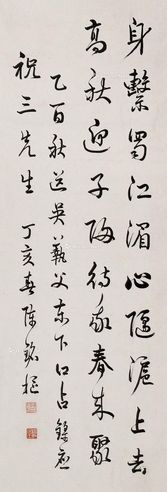 身繫蜀江湄心隨滬上去
高秋迎子歸待我春來聚
乙酉秋送吳藹父東下口占錄應
祝三先生 丁亥春陳銘樞